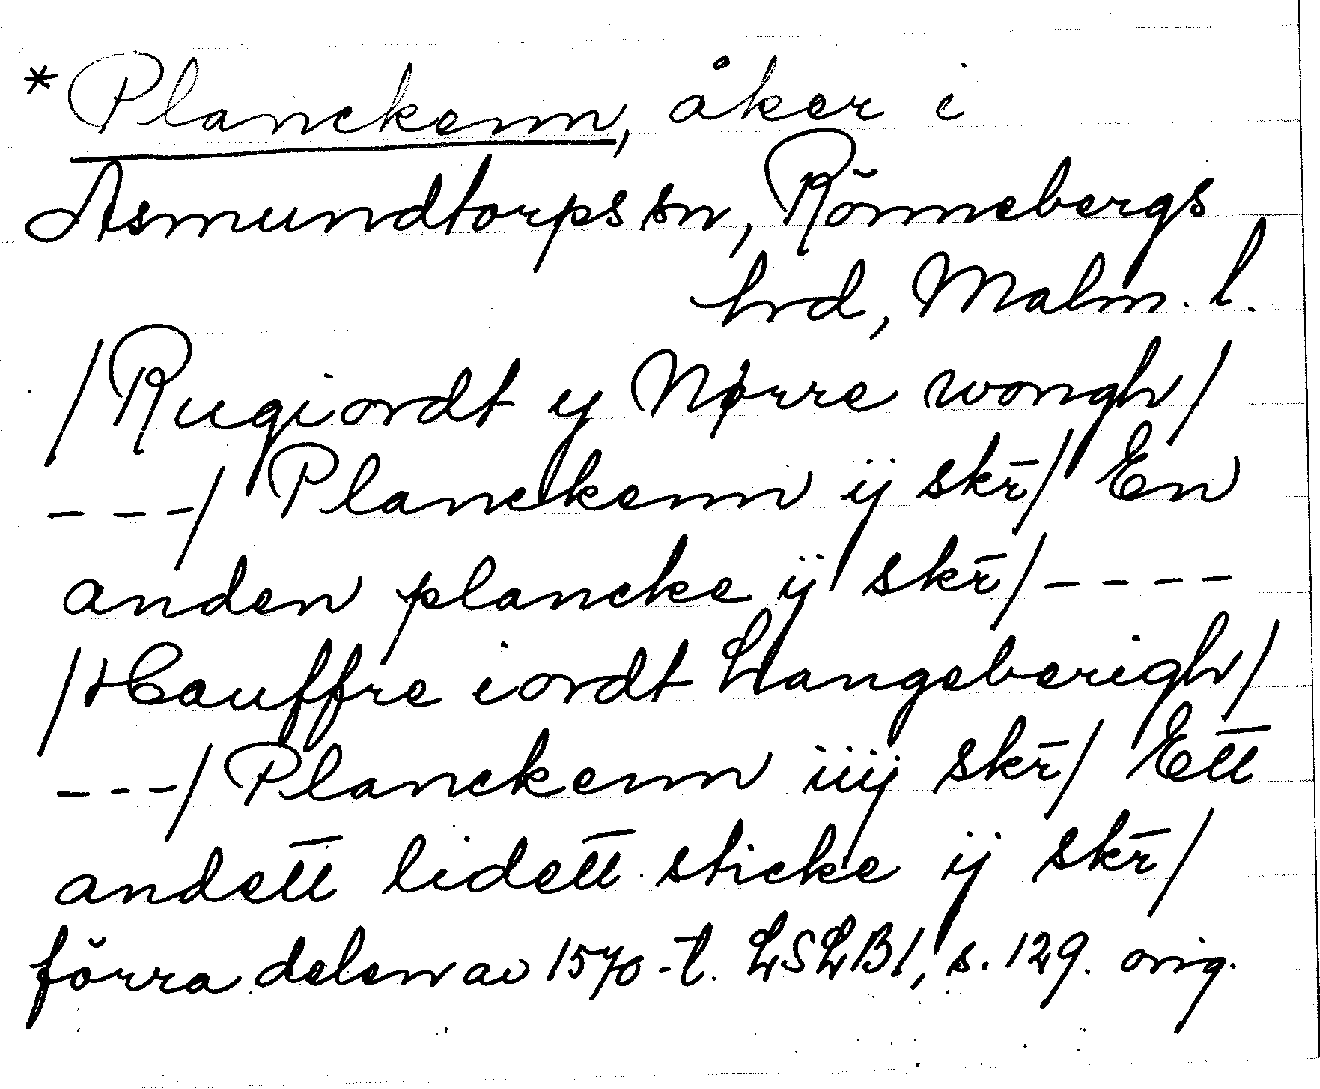 *Planckenn, åker i
Asmundtorps sn, Rönnebergs
hrd, Malm. l.
/Rugiordt y Nørre wongh/
---/ Planckenn ij skr̄/ En
anden plancke ij skr̄/----
/Hauffre iordt Langeberigh/
---/Planckenn iiij skr̄/ Ett
andett lidett sticke ij skr̄/
förra delen av 1570-t. LSLB1, s. 129. orig.